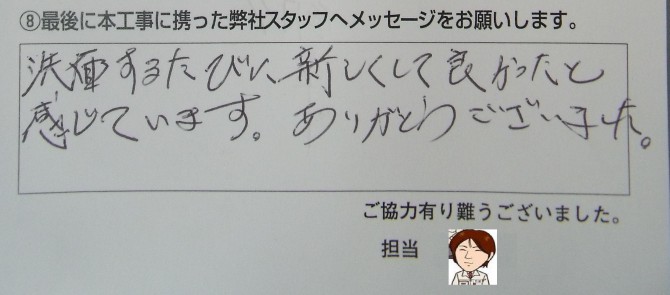 ⑧最後に本工事に携った弊社スタッフへメッセージをお願いします。
洗濯するたびに、新しくして良かったと
感じています。ありがとうございました。
ご協力有り難うございました。
担当